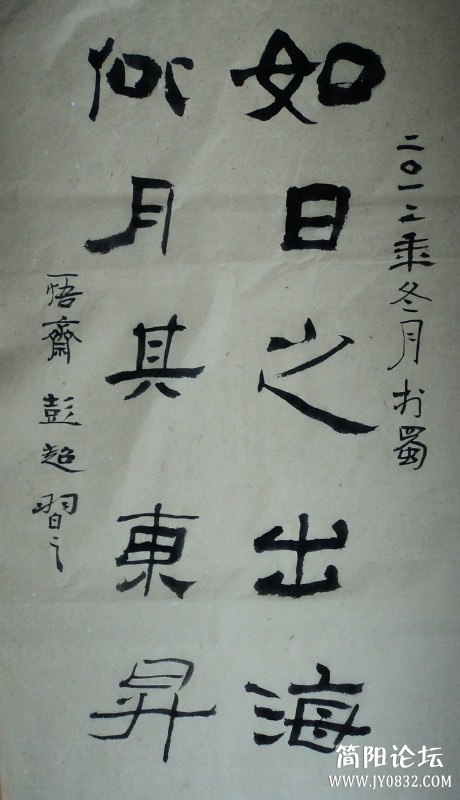 二〇一二乘冬月於蜀
如日之出海
似月其東昇
悟齋 彭超 習之
简阳论坛
WWW.JY0832.COM